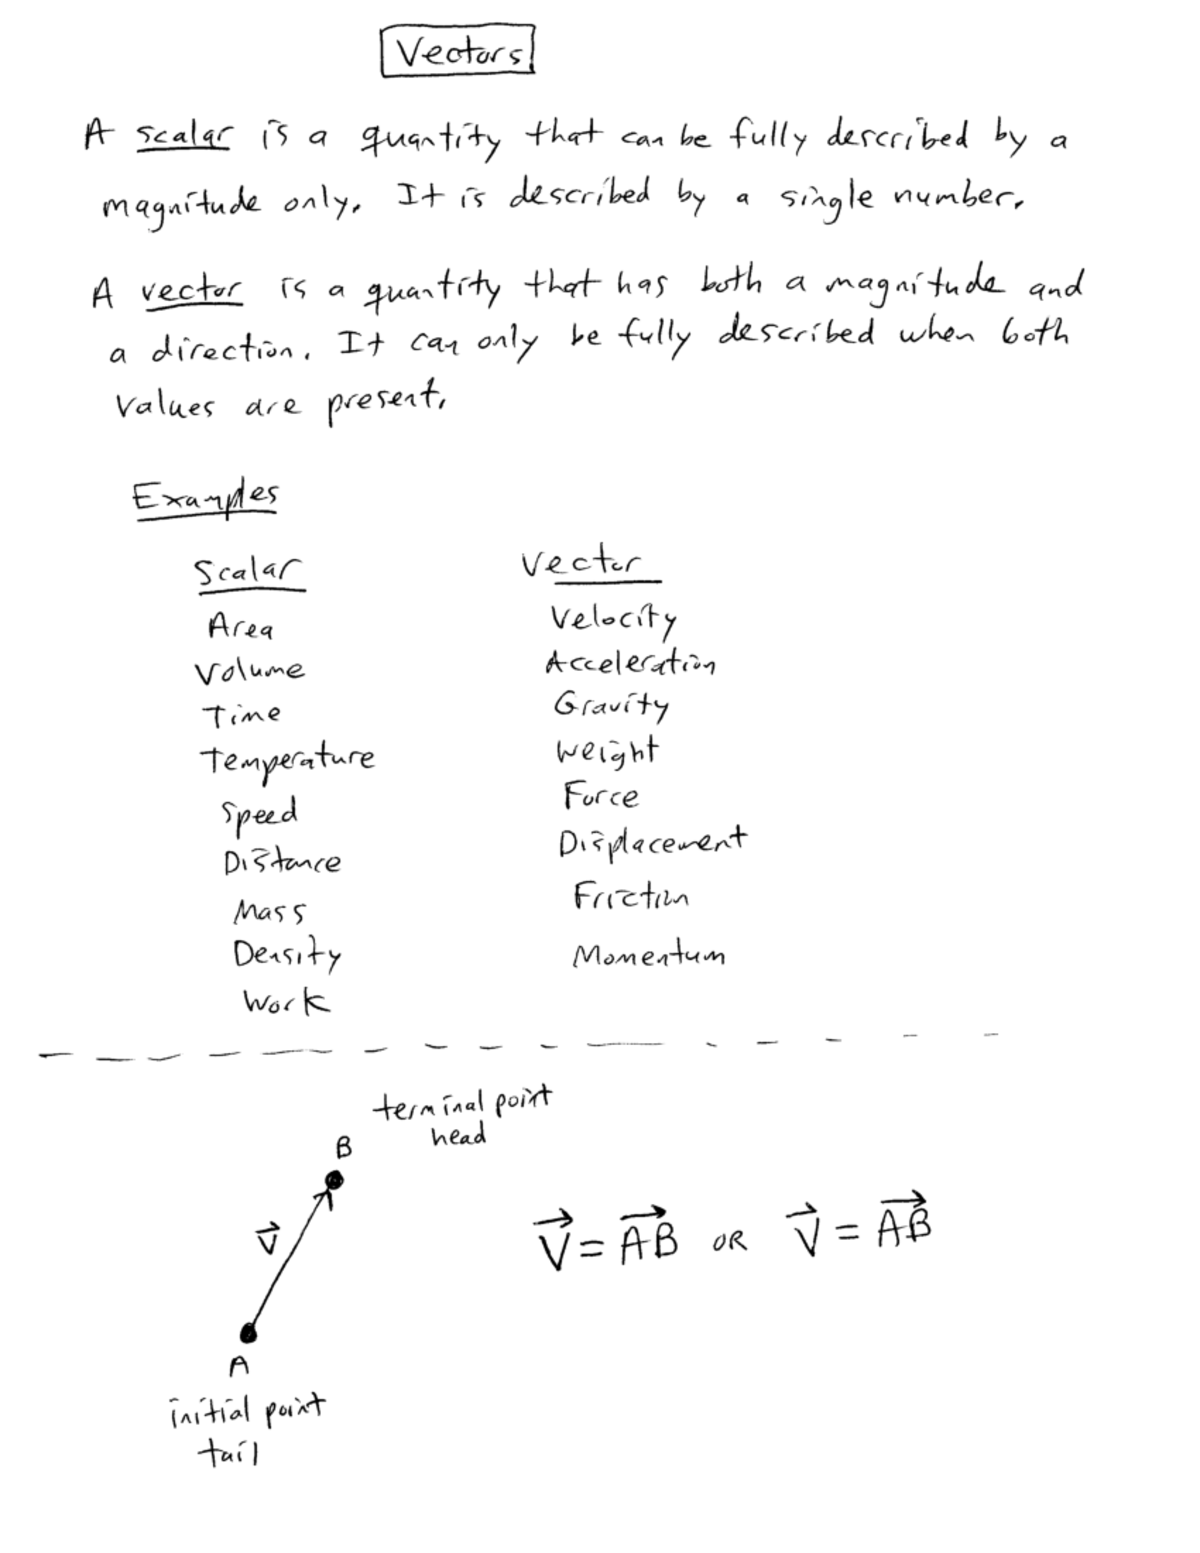 Vectors
A scalar is a quantity that can be fully described by a
magnitude only. It is described by a single number.
A vector is a quantity that has both a magnitude and
a direction. It can only be fully described when both
values are present.
Examples
Scalar
Area
Volume
Time
Temperature
Speed
Distance
Mass
Density
Work
Vector
Velocity
Acceleration
Gravity
Weight
Force
Displacement
Friction
Momentum
terminal point
head
B
V⃗
A
initial point
tail
V⃗ = A⃗B⃗ OR V⃗ = A⃗B⃗